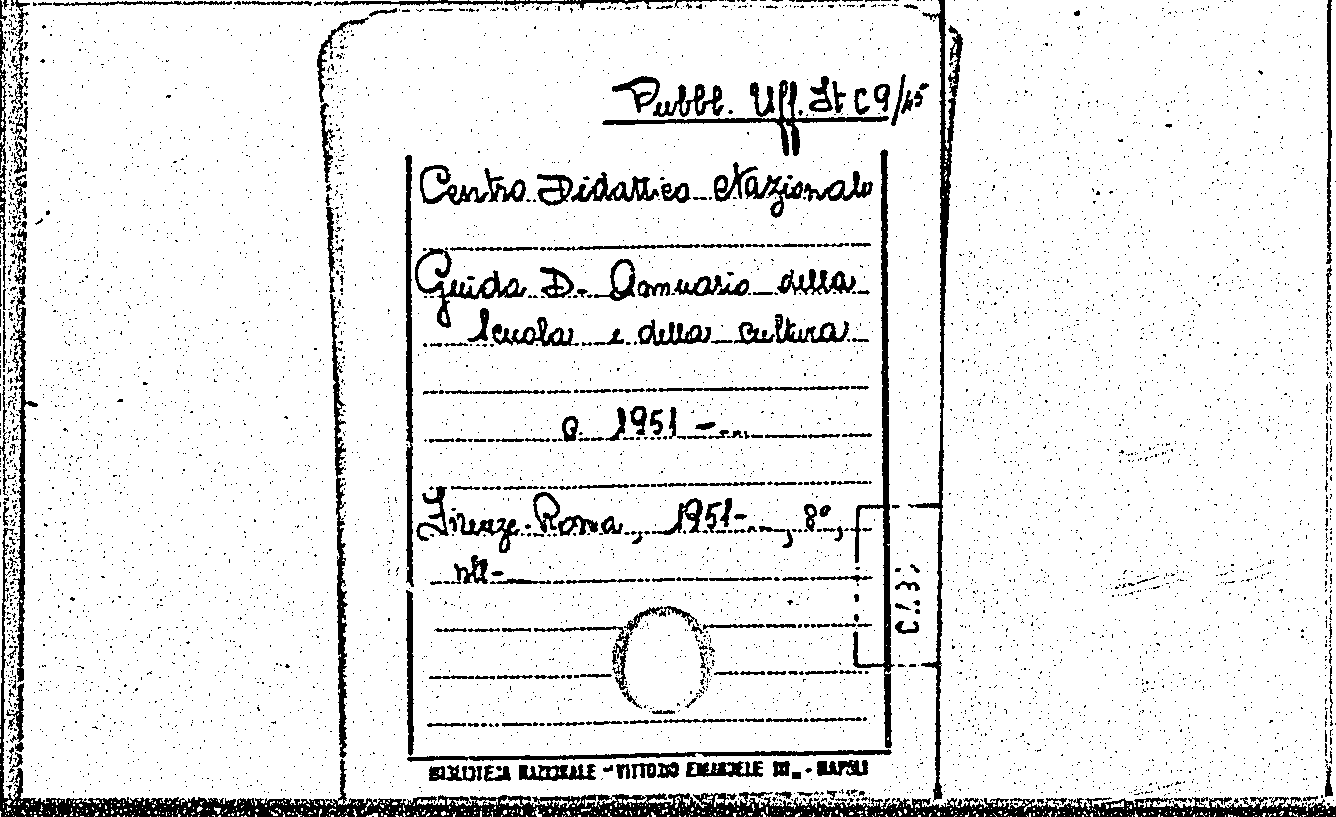 Pubbl. Uff. It C 9/45
Centro Didattico Nazionale
Guida D- Annuario della
scuola e della cultura
a 1951 -...
Firenze-Roma, 1951-..., 8°,
BIBLIOTECA NAZIONALE - VITTORIO EMANUELE III. - NAPOLI